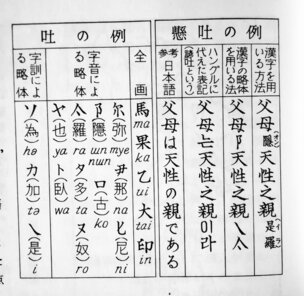 懸吐の例
漢字を用いる方法
父母隠(オン)天性之親是羅(イラ)
漢字の略体を用いる法
父母阝天性之親乀亽
ハングルに代えた表記(諺吐という)
父母는天性之親이라
参考 日本語
父母は天性の親である
吐の例
全画
馬ma 果ka 乙ui 大tai 印in
字音による略体
尓(弥)mye 尹(那)na 匕(尼)ni
阝(隠)un nwn 口(古)ko
亽(羅)ra 夕(多)ta 又(奴)ro
ヤ(也)ya 卜(臥)wa
字訓による略体
ソ(為)hə 力(加)tə 乀(是)i